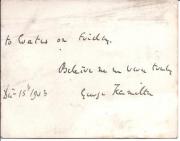 to Coates on Friday.
Believe me yours truly
Dec 15th 1903 George Hamilton